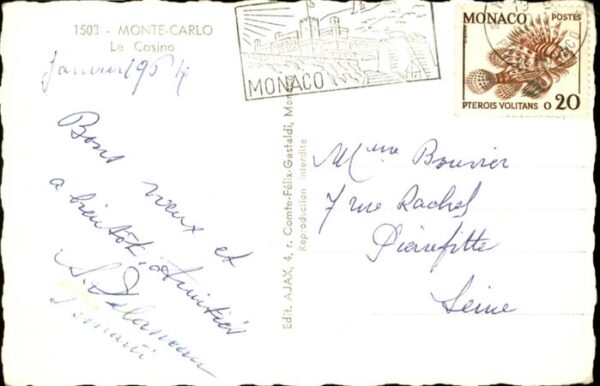 1503 - MONTE-CARLO
Le Casino
Janvier 1964
Bons vœux et
a bientôt, amitiés
MONACO
MONACO POSTES
PTEROIS VOLITANS 0.20
Edit. AJAX, 4, r. Comte-Félix-Gastaldi, Monaco
Reproduction interdite
Mme Bouvier
7 rue Rachel
Pierrefitte
Seine